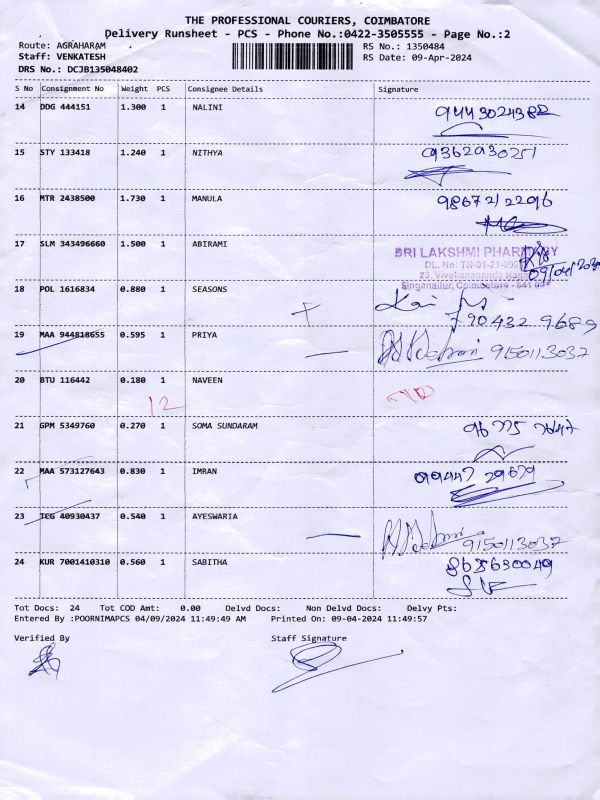 THE PROFESSIONAL COURIERS, COIMBATORE
Delivery Runsheet - PCS - Phone No.:0422-3505555 - Page No.:2
Route: AGRAHARAM RS No.: 1350484
Staff: VENKATESH RS Date: 09-Apr-2024
DRS No.: DCJB135048402
S No Consignment No Weight PCS Consignee Details Signature
14 DDG 444151 1.300 1 NALINI 9443024382
15 STY 133418 1.240 1 NITHYA 9362930251
16 MTR 2438500 1.730 1 MANULA 9867212296
17 SLM 343496660 1.500 1 ABIRAMI
SRI LAKSHMI PHARMACY
23, Vivekanananda
Singanallur, Coimbatore
18 POL 1616834 0.880 1 SEASONS
790432 9689
19 MAA 944818655 0.595 1 PRIYA 9150113037
20 BTU 116442 0.180 1 NAVEEN
12
21 GPM 5349760 0.270 1 SOMA SUNDARAM 96775 7647
22 MAA 573127643 0.830 1 IMRAN 099447 29679
23 TCG 40930437 0.540 1 AYESWARIA
9150113037
24 KUR 7001410310 0.560 1 SABITHA 8685630049
Tot Docs: 24 Tot COD Amt: 0.00 Delvd Docs: Non Delvd Docs: Delvy Pts:
Entered By :POORNIMAPCS 04/09/2024 11:49:49 AM Printed On: 09-04-2024 11:49:57
Verified By Staff Signature